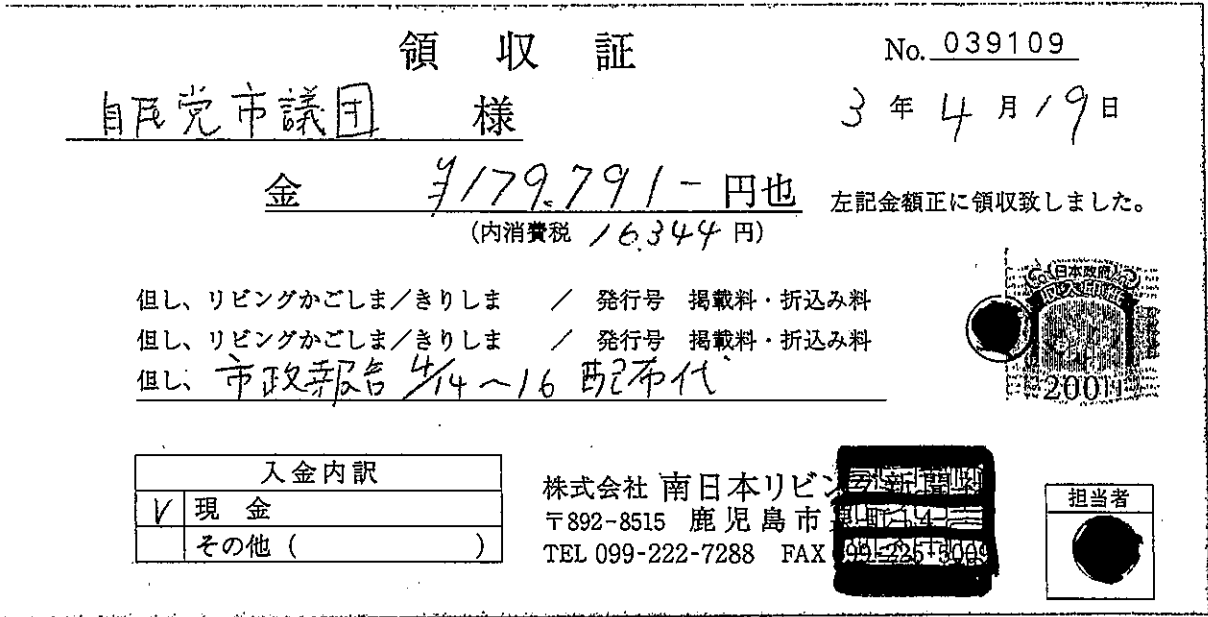 領収証
No. 039109
自民党市議団 様
3年4月19日
金 ¥179,791-円也
左記金額正に領収致しました。
(内消費税 16,344 円)
日本政府
但し、リビングかごしま/きりしま / 発行号 掲載料・折込み料
但し、リビングかごしま/きりしま / 発行号 掲載料・折込み料
200円
但し、市政報告 4/14~16 配布代
入金内訳
V 現金
その他( )
株式会社 南日本リビング新聞社
〒892-8515 鹿児島市
TEL 099-222-7288 FAX
担当者